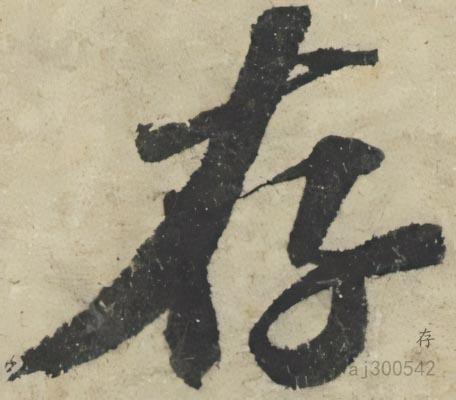 存
存
aj300542